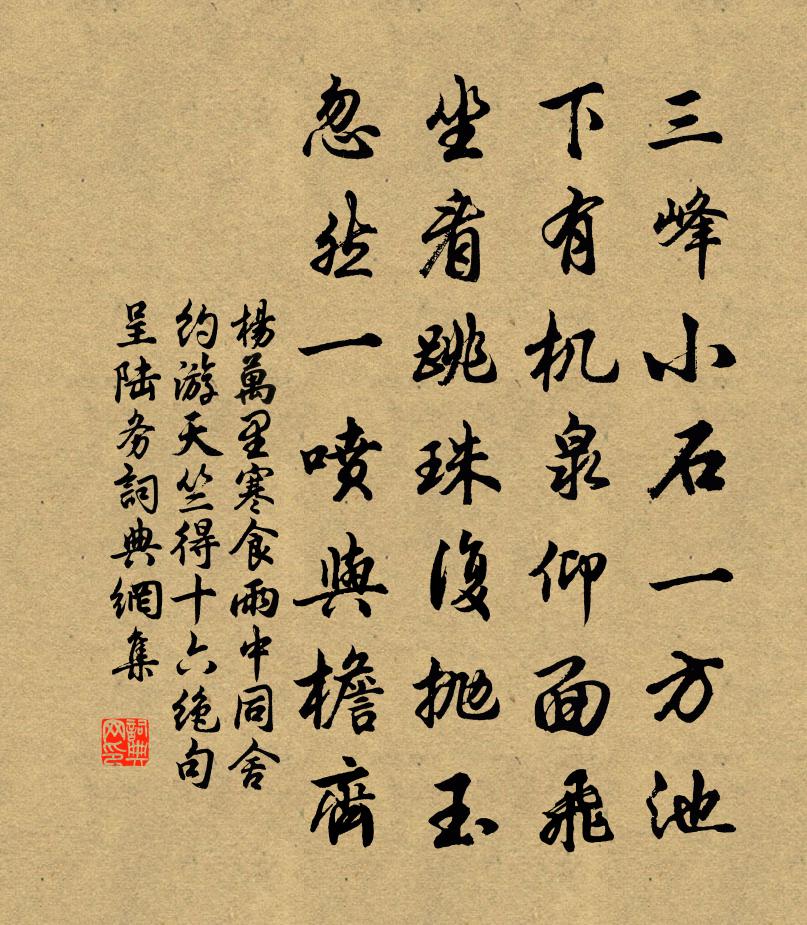 三峰小石一方池
下有机泉仰面飛
坐看跳珠復抛玉
忽然一噴與檐齊
楊萬里寒食雨中同舍
約游天竺得十六絶句
呈陆务詞典網集
詞典网印